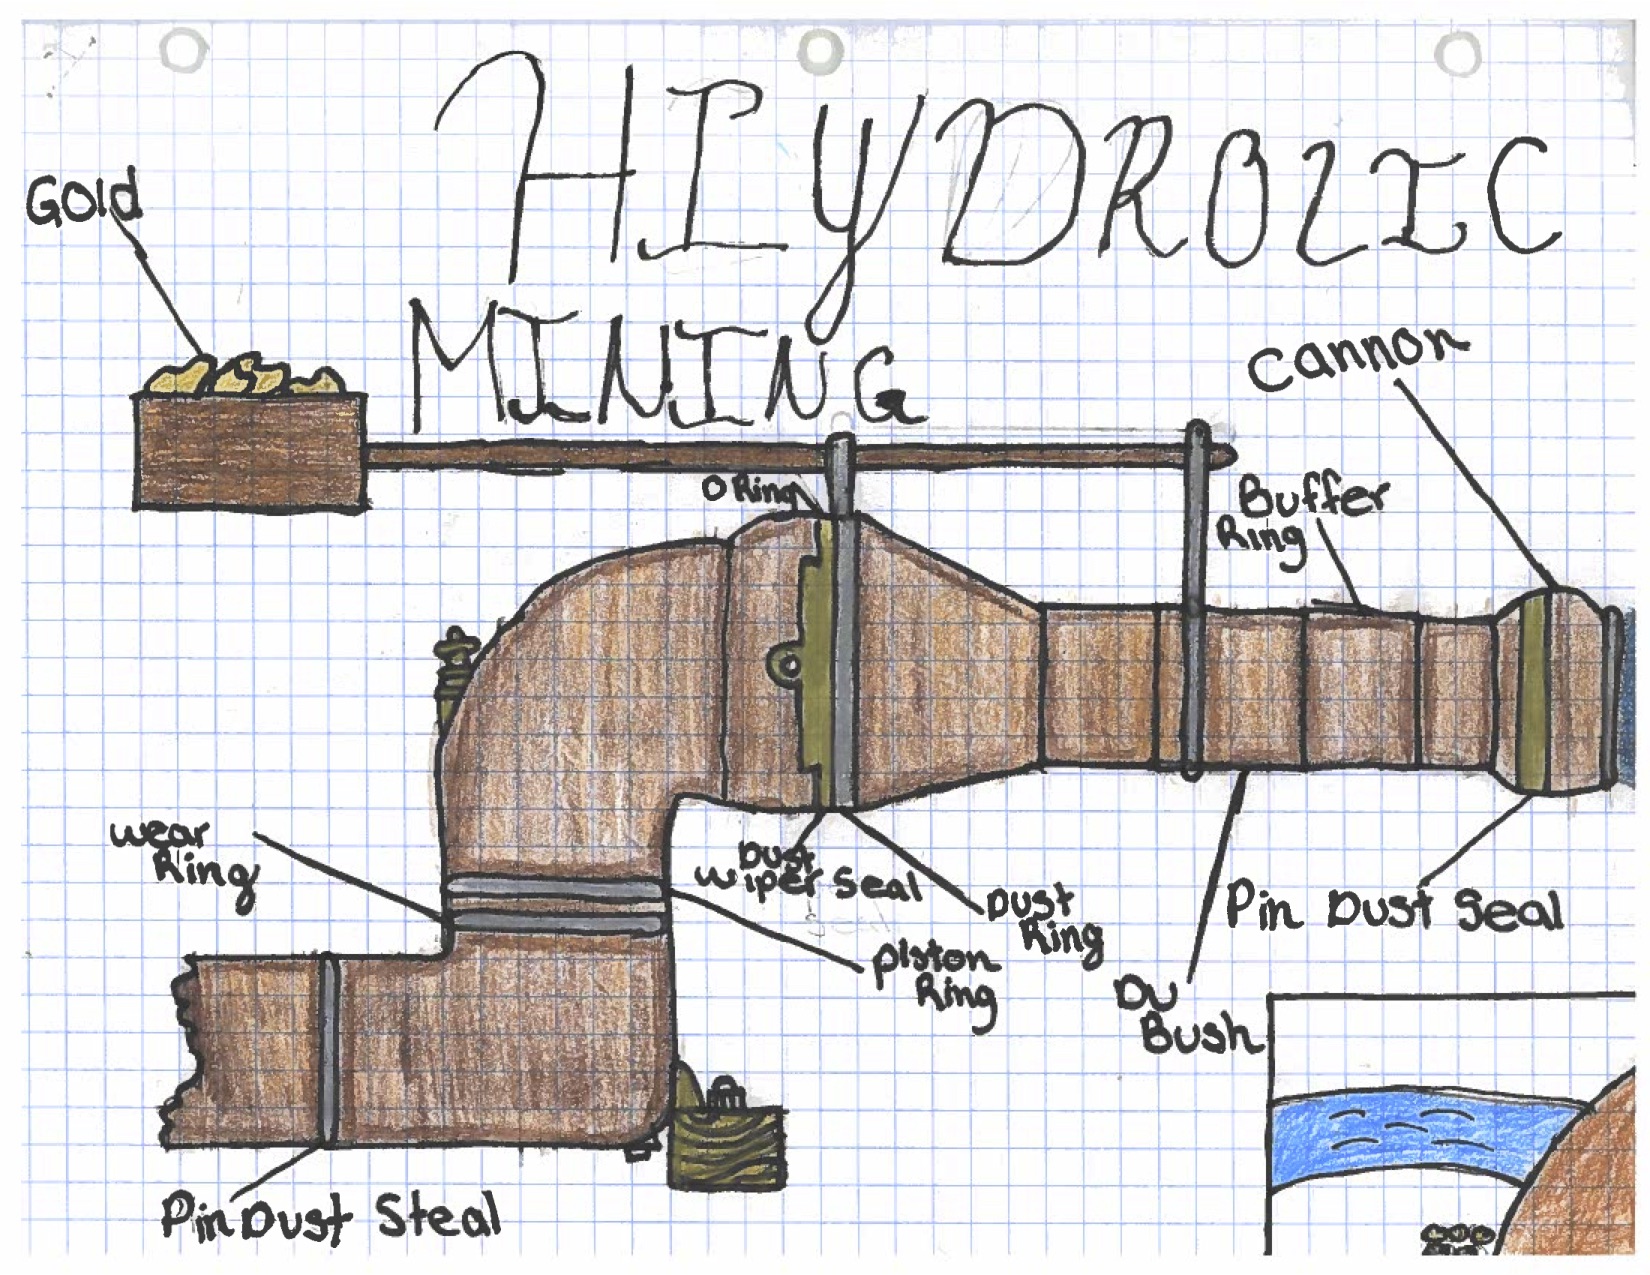 HIYDROLIC
MINING
Gold
Cannon
O Ring
Buffer
Ring
wear
Ring
Dust
Wiper Seal
Dust
Ring
Piston
Ring
Pin Dust Seal
Du
Bush
Pin Dust Steal